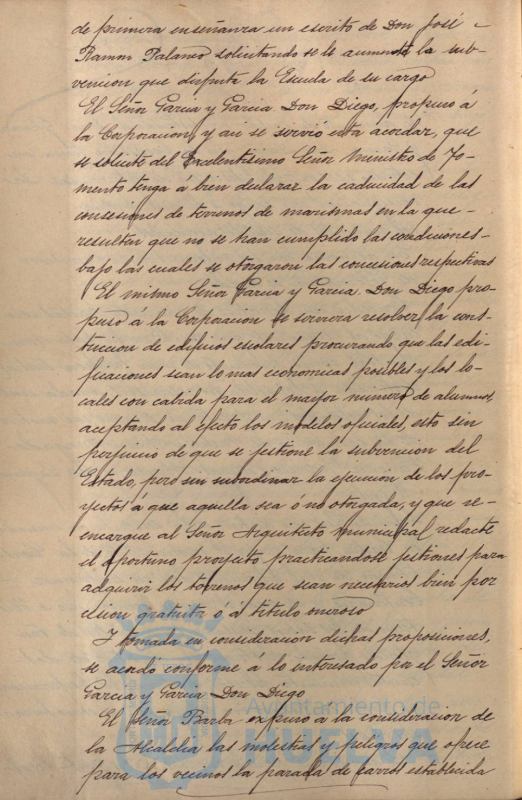 de primera enseñanza un escrito de Don José
Ramon Palanco solicitando se le aumente la sub-
vencion que disfruta la Escuela de su cargo
El Señor Garcia y Garcia Don Diego, propuso á
la Corporacion, y asi se sirvió esta acordar, que
se solicite del Excelentisimo Señor Ministro de Fo-
mento tenga á bien declarar la caducidad de las
concesiones de terrenos de marismas en la que -
resulten que no se han cumplido las condiciones -
bajo las cuales se otorgaron las concesiones respectivas
El mismo Señor Garcia y Garcia Don Diego pro-
puso á la Corporacion se sirviera resolver la cons-
truccion de edificios escolares procurando que las edi-
ficaciones sean lo mas economicas posibles y los lo-
cales con cabida para el mayor numero de alumnos,
aceptando al efecto los modelos oficiales, esto sin
perjuicio de que se gestione la subvencion del
Estado, pero sin subordinar la ejecucion de los pro-
yectos á que aquella sea ó no otorgada, y que se -
encargue al Señor Arquitecto municipal redacte
el oportuno proyecto practicandose gestiones para
adquirir los terrenos que sean necesarios bien por
cesion gratuita ó á titulo oneroso
Y tomada en consideracion dichas proposiciones,
se acordó conforme á lo interesado por el Señor
Garcia y Garcia Don Diego
El Señor Barba expuso á la consideracion de
la Alcaldia las molestias y peligros que ofrece
para los vecinos la parada de carros establecida
Ayuntamiento de
HUELVA